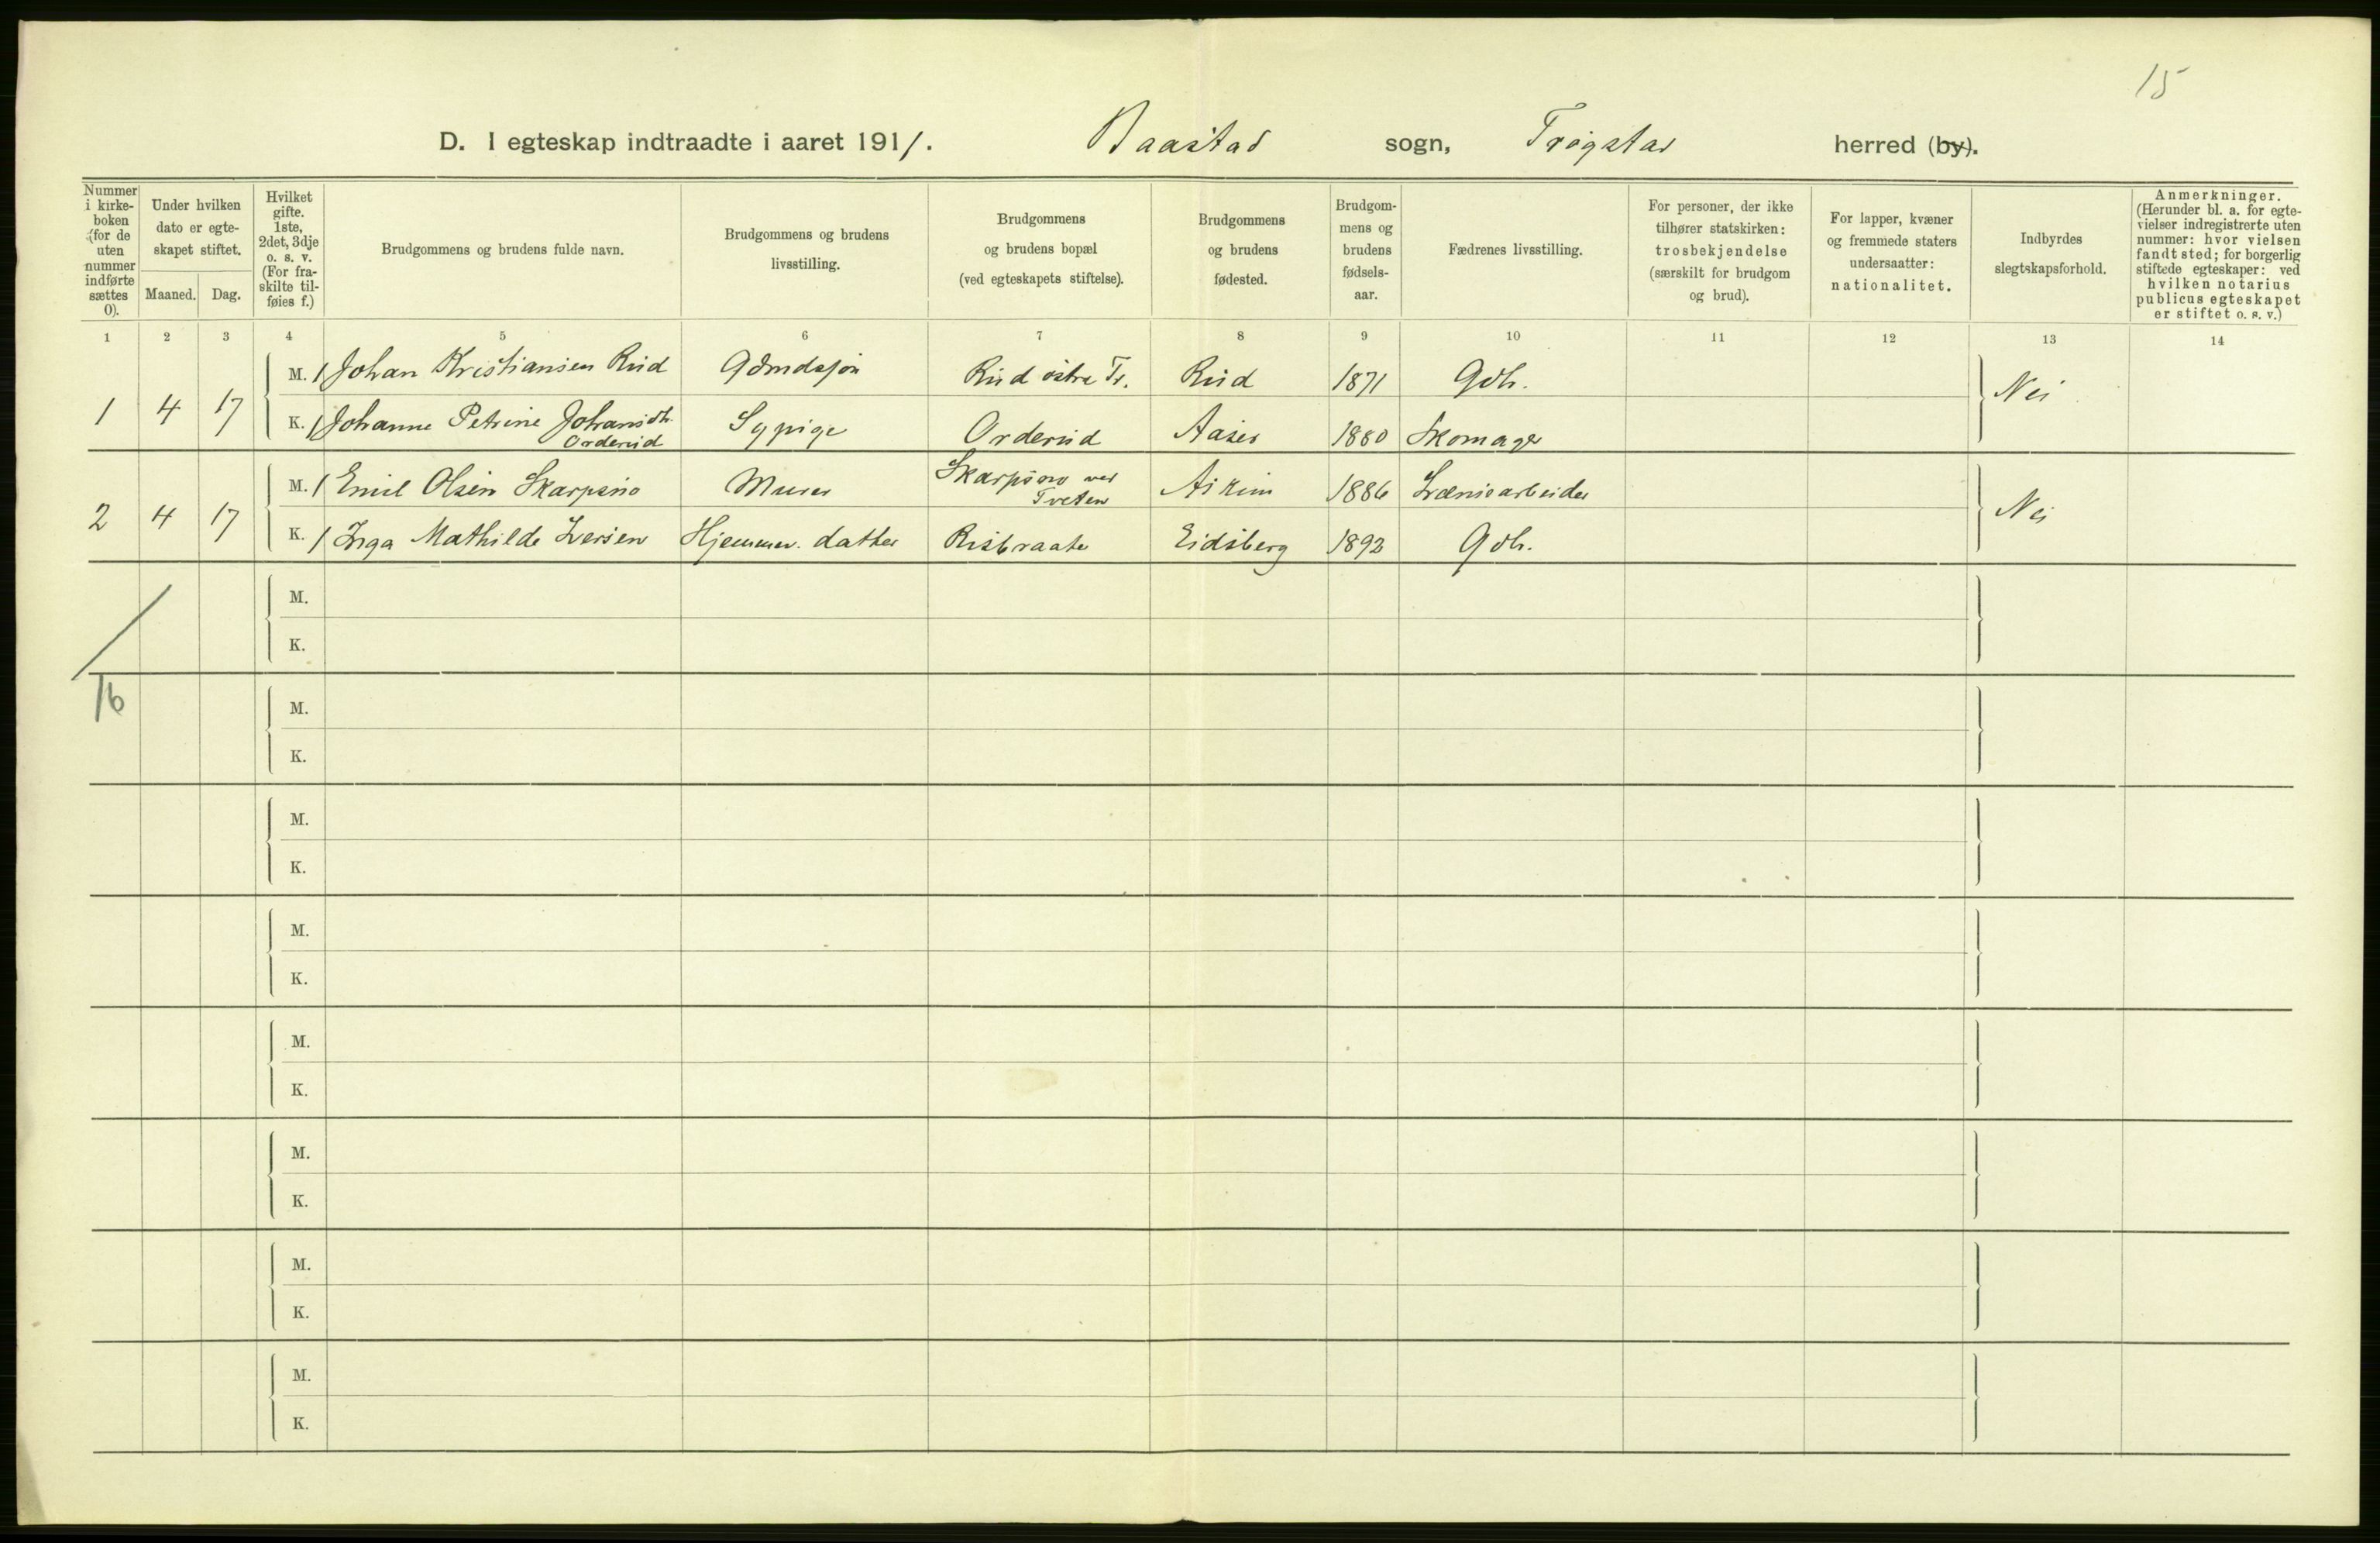 15
D. I egteskap indtraadte i aaret 1911. Baastad sogn, Trøgstad herred (by).
Nummer i kirke-boken (for de uten nummer indførte sættes 0).
Under hvilken dato er egte-skapet stiftet.
Maaned. Dag.
Hvilket gifte. 1ste, 2det, 3dje o. s. v. (For fra-skilte til-føies f.)
Brudgommens og brudens fulde navn.
Brudgommens og brudens livsstilling.
Brudgommens og brudens bopæl (ved egteskapets stiftelse).
Brudgommens og brudens fødested.
Brudgom-mens og brudens fødsels-aar.
Fædrenes livsstilling.
For personer, der ikke tilhører statskirken: trosbekjendelse (særskilt for brudgom og brud).
For lapper, kvæner og fremmede staters undersaatter: nationalitet.
Indbyrdes slegtskapsforhold.
Anmerkninger. (Herunder bl. a. for egte-vielser indregistrerte uten nummer: hvor vielsen fandt sted; for borgerlig stiftede egteskaper: ved hvilken notarius publicus egteskapet er stiftet o. s. v.)
1 2 3 4 5 6 7 8 9 10 11 12 13 14
M. 1 Johan Kristiansen Rud Rud østre Tr. Rud 1871 Gdb.
1 4 17 Nei
K. 1 Johanne Petrine Johansdtr. Orderud Sypige Orderud Aaser 1880 Skomager
M. 1 Emil Olsen Skarpsno Murer Skarpsno ved Tveten Askim 1886 1886 Løsarbeider
2 4 17 Nei
K. 1 Inga Mathilde Iversen Hjemmev. datter Risbraate Eidsberg 1892 Gdb.
M.
K.
16
M.
K.
M.
K.
M.
K.
M.
K.
M.
K.
M.
K.
M.
K.